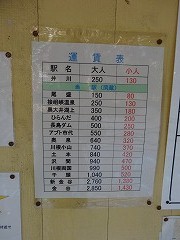 運賃表
駅名 大人 小人
井川 250 130
尾盛 150 80
接岨峡温泉 250 130
奥大井湖上 350 180
ひらんだ 400 200
長島ダム 500 250
アプト市代 550 280
奥泉 640 320
川根小山 740 370
土本 840 420
沢間 940 470
川根両国 990 500
千頭 1,040 520
新金谷 2,760
金谷 2,850 1,430